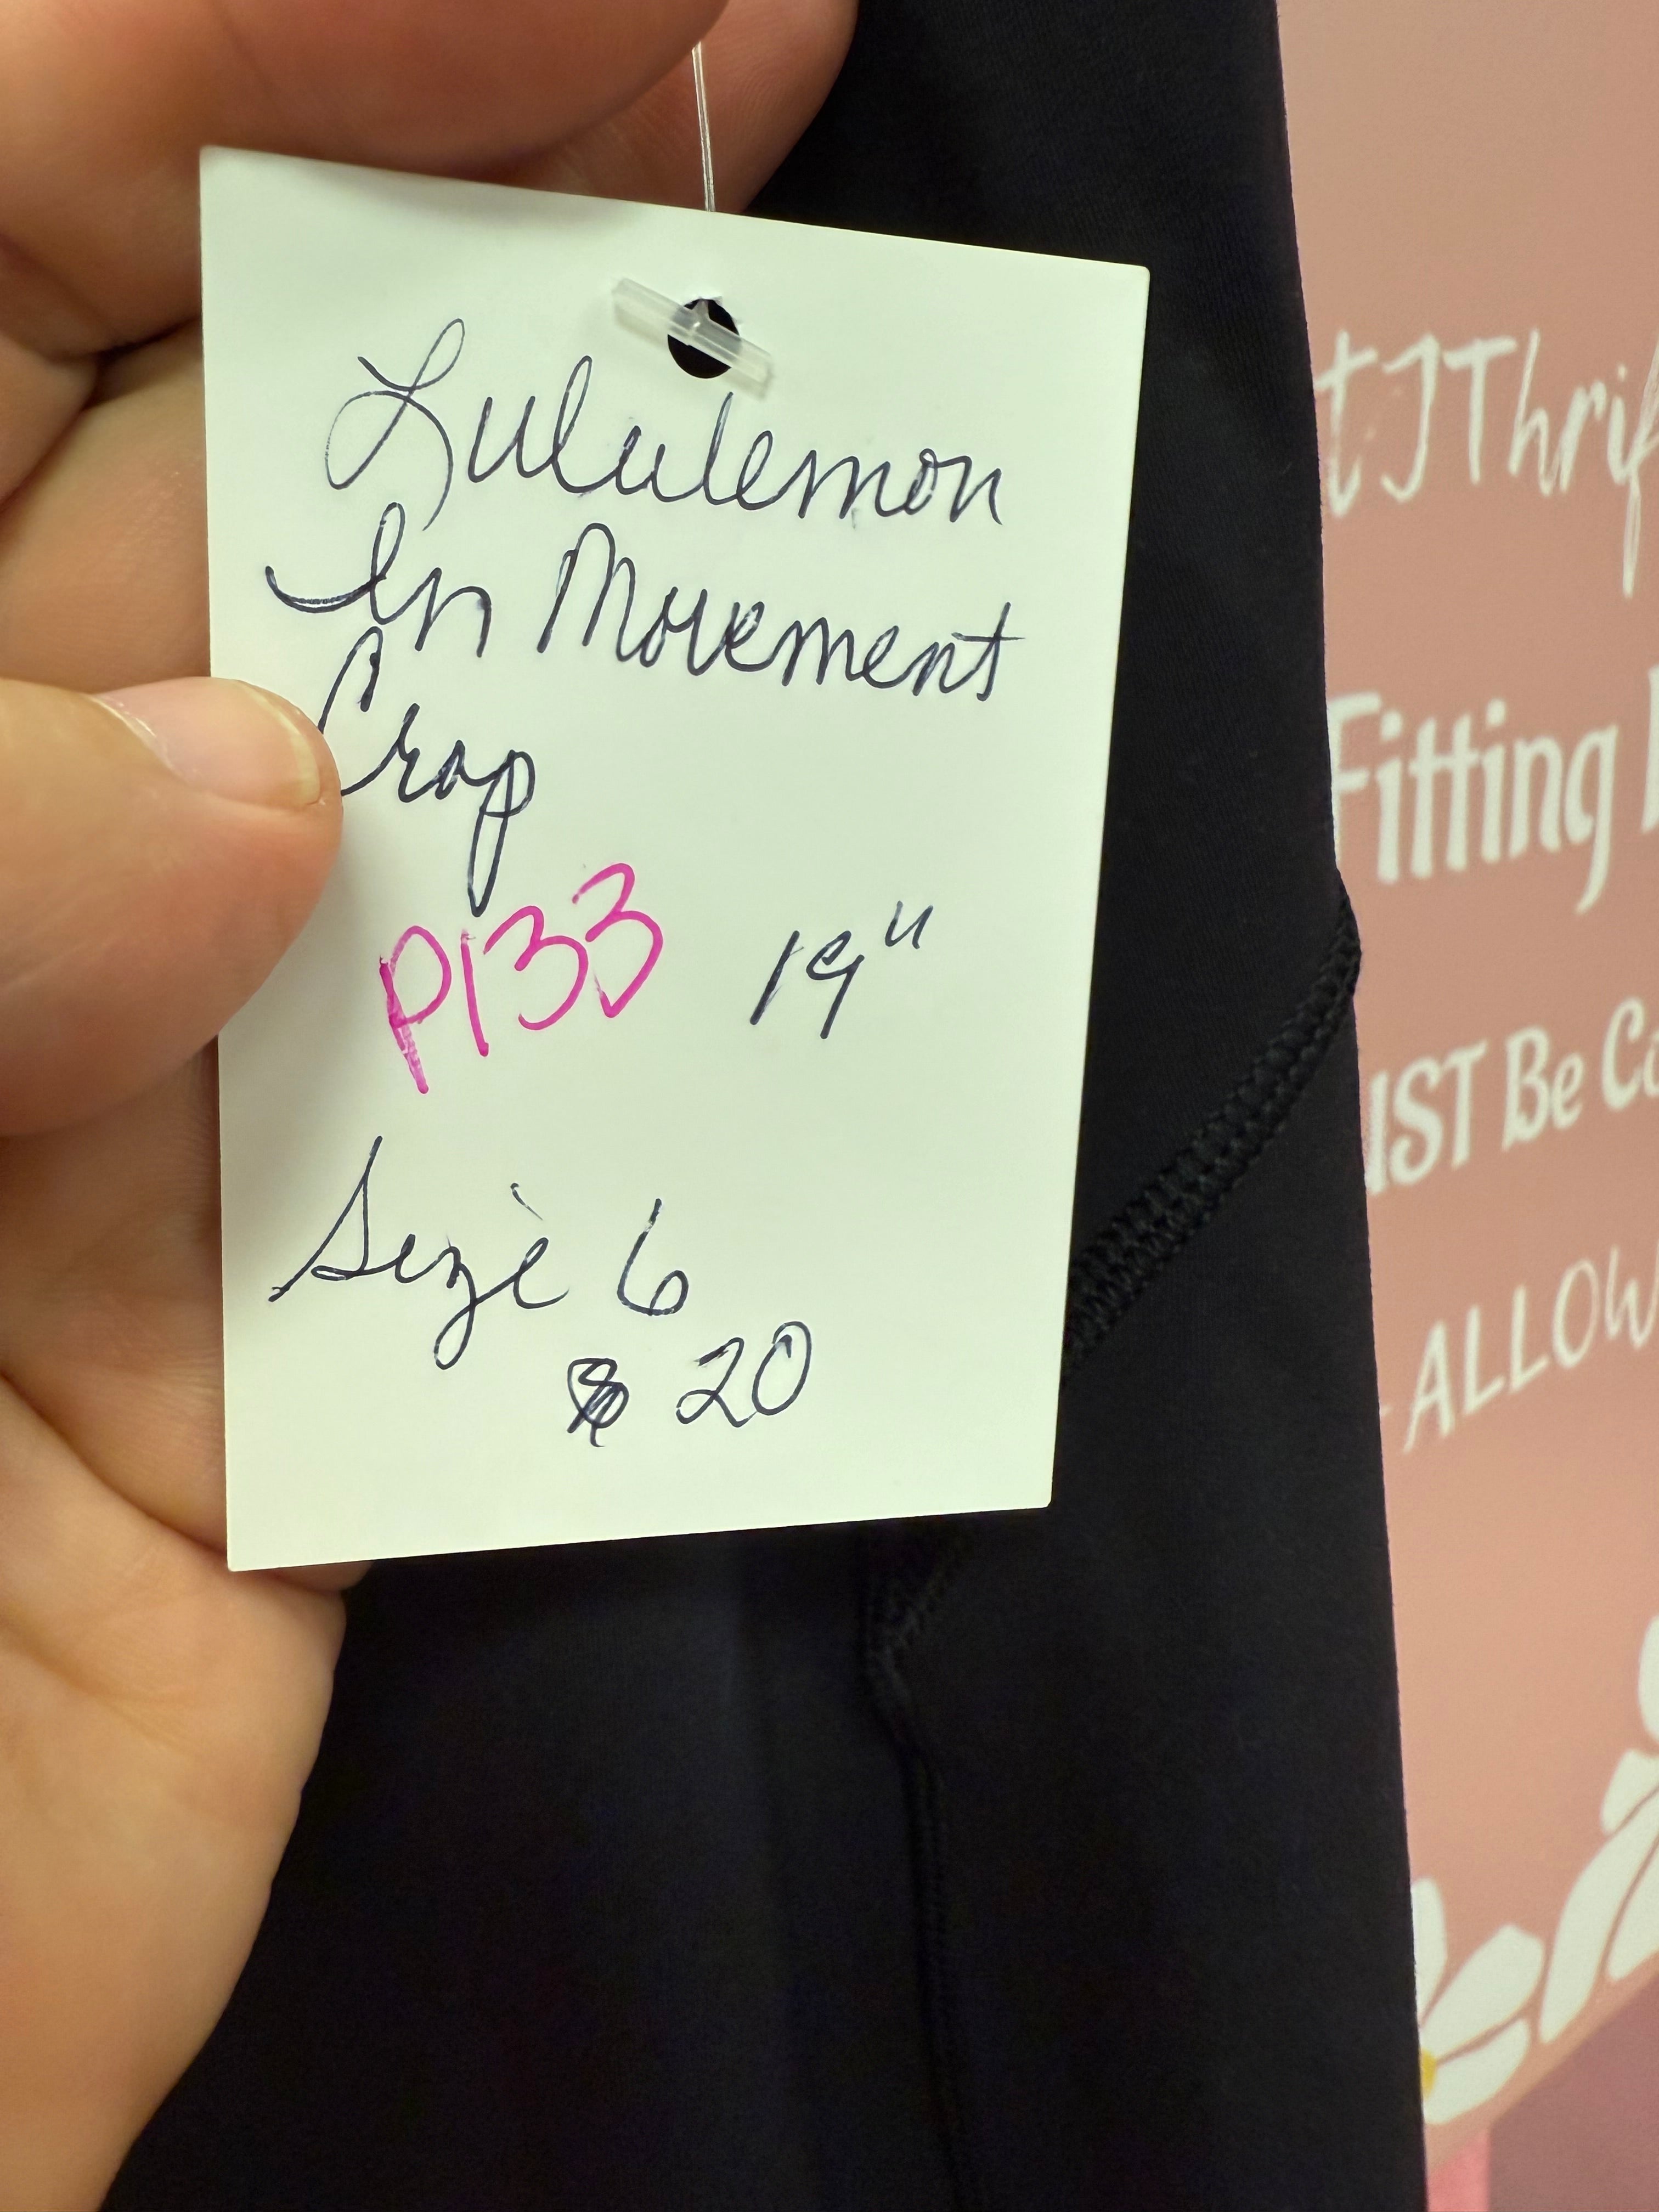 Lululemon
In Movement
Crop
P133 19"
Size 6
$ 20
tJThrif
Fitting
UST Be Ca
ALLOW